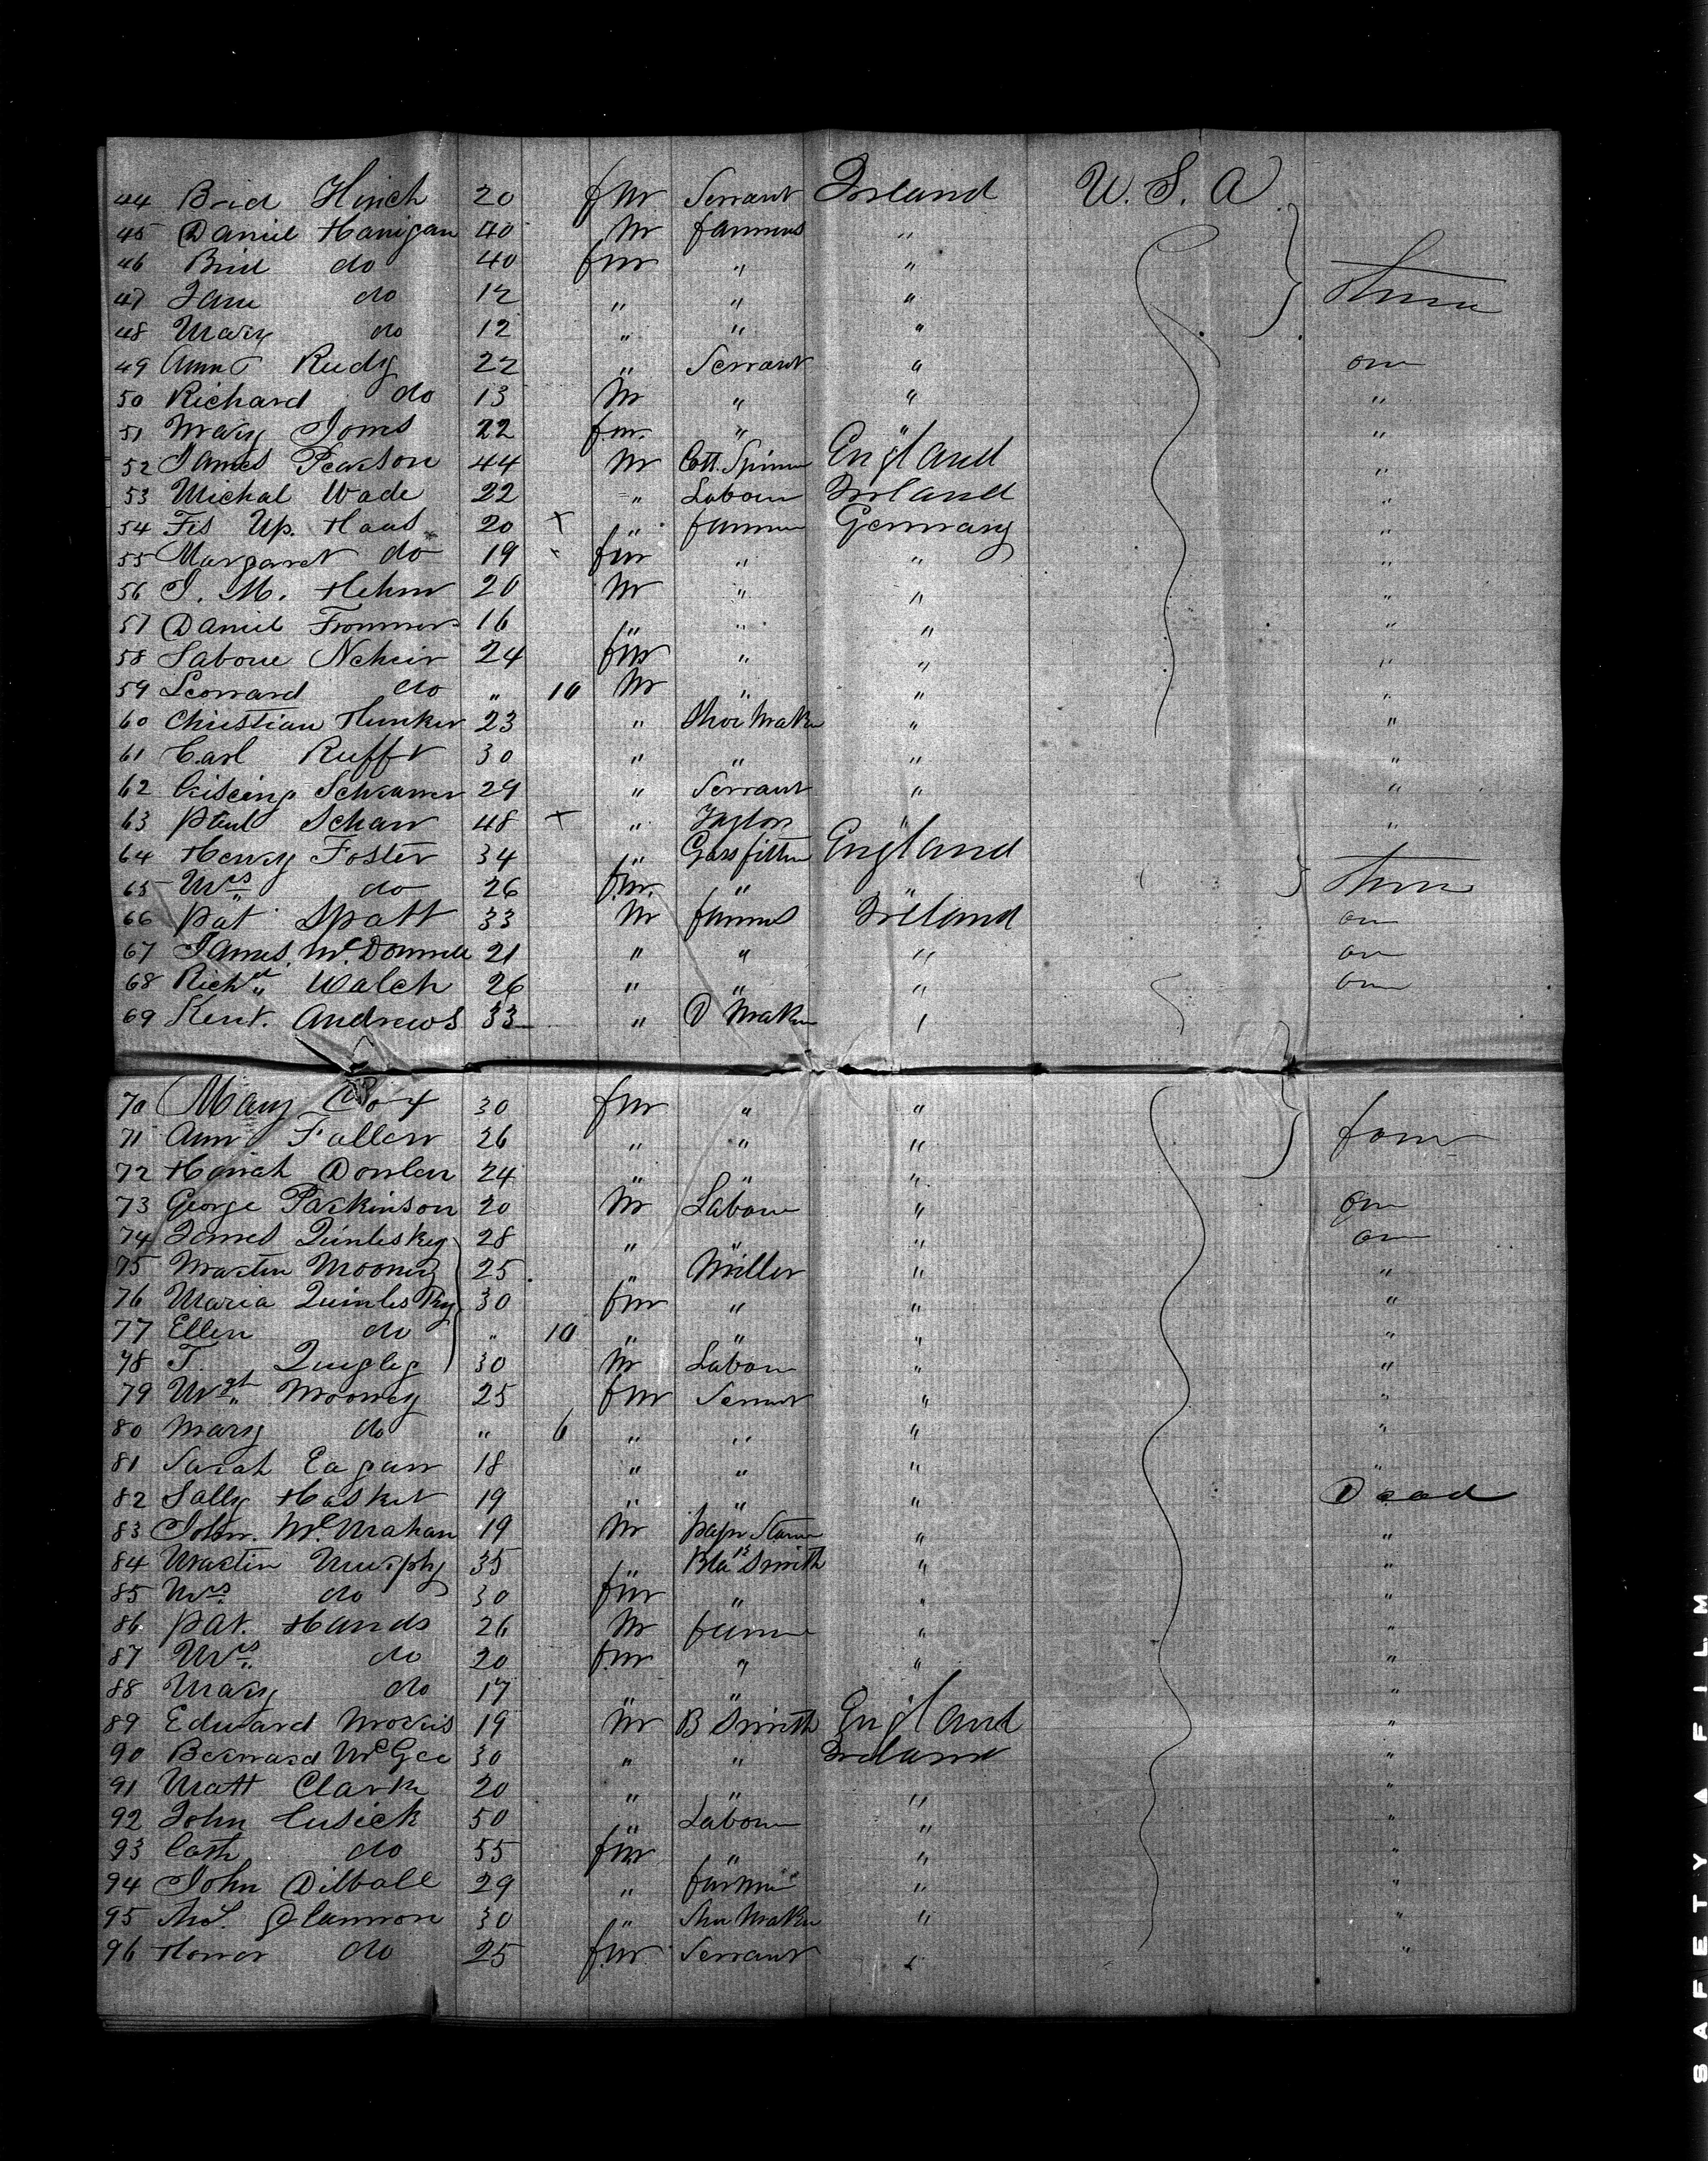 44 Brid Hinch 20 fm Servant Irland U. S. A
45 Daniel Hanigan 40 M farmers "
46 Brid do 40 fm " "
47 Jane do 12 " " "
48 Mary do 12 " " "
49 Ann Rudy 22 " Servant "
50 Richard do 13 M " " "
51 Mary Joms 22 fm. " " "
52 James Pearson 44 M Cott. Spinner England "
53 Michal Wade 22 " Labour Irland "
54 Up. Haas 20 x " farmer Germany "
55 Margaret do 19 fm " " "
56 J. M. Hehm 20 M " " "
57 Daniel Frommer 16 " " " "
58 24 fm " " "
59 Leonard do " 10 M " " "
60 Christian Hunker 23 " Shoe Maker " "
61 Carl Rufft 30 " " " "
62 29 " Servant " "
63 Paul Schaw 48 x " Taylor " "
64 Henry Foster 34 " Gass fitter England
65 Mrs do 26 fm. "
66 Pat Spatt 33 M farmer Ireland
67 James McDonnell 21 " " "
68 Richd Walch 26 " " "
69 Kent. Andrews 33 " D Maker "
70 Mary Cox 30 fm " "
71 Ann Fallen 26 " " "
72 Donlan 24 " " "
73 George Parkinson 20 M Labour "
74 James Quinliskey 28 " " "
75 Martin Mooney 25 " Miller " "
76 Maria Quinliskey 30 fm " " "
77 Ellen do " 10 " " " "
78 T. Quigley 30 M Labour " "
79 Mrgt Mooney 25 fm Servant " "
80 Mary do " 6 " " " "
81 Sarah Eagan 18 " " " "
82 Sally Hasket 19 " " " Dead
83 John McMahan 19 M " "
84 Martin Murphy 35 " Blk Smith " "
85 Mrs do 30 fm " " "
86 Pat. Hands 26 M farmer " "
87 Mrs do 20 fm " " "
88 Mary do 17 " " "
89 Edward Morris 19 M B Smith England "
90 Bernard McGee 30 " " Ireland "
91 Matt Clark 20 " " " "
92 John Cusick 50 " Labour " "
93 Cath do 55 fm " " "
94 John Dilball 29 " farmer " "
95 Thos. Glannon 30 " Shu Maker " "
96 Honor do 25 fm Servant " "
SAFETY FILM